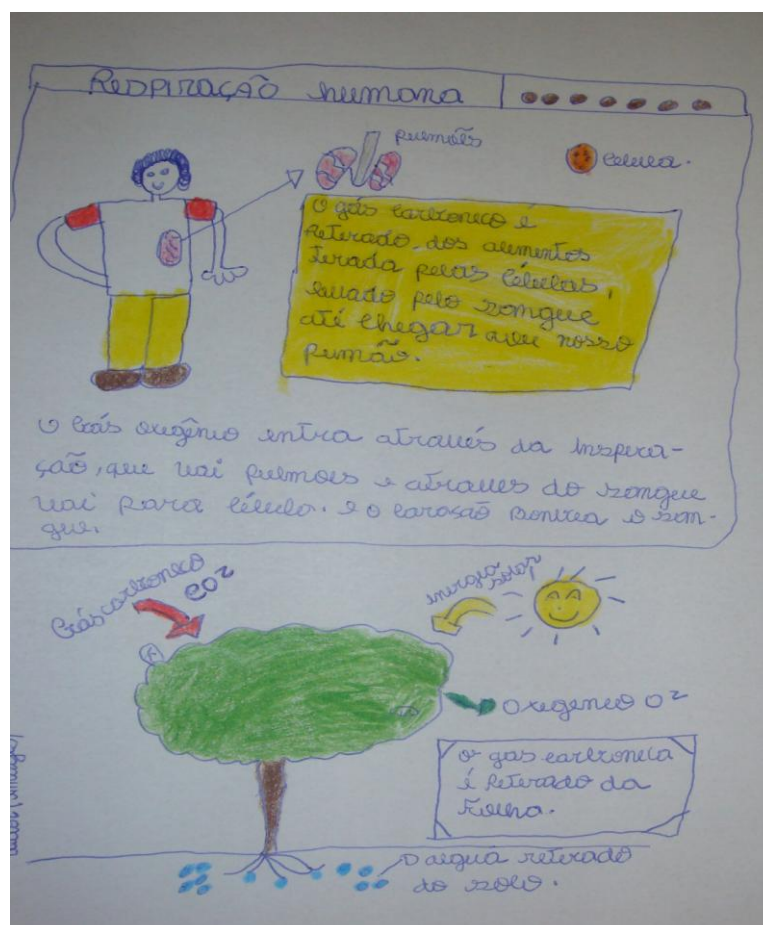 Respiração humana
pulmões
célula.
O gás carbonico é
reterado, dos alimentos
terada pelas células,
levado pelo sangue
até chegar aou nosso
pumão.
O Gás oxegênio entra através da Inspira-
ção, que vai pulmoes e atraves do sangue
vai para célula. e o carasão bonbea o san-
gue.
Gás carbonico
CO²
energia
solar
Oxegeneo O²
O gas carbonica
é reterado da
folha.
D aigua reterado
do solo.